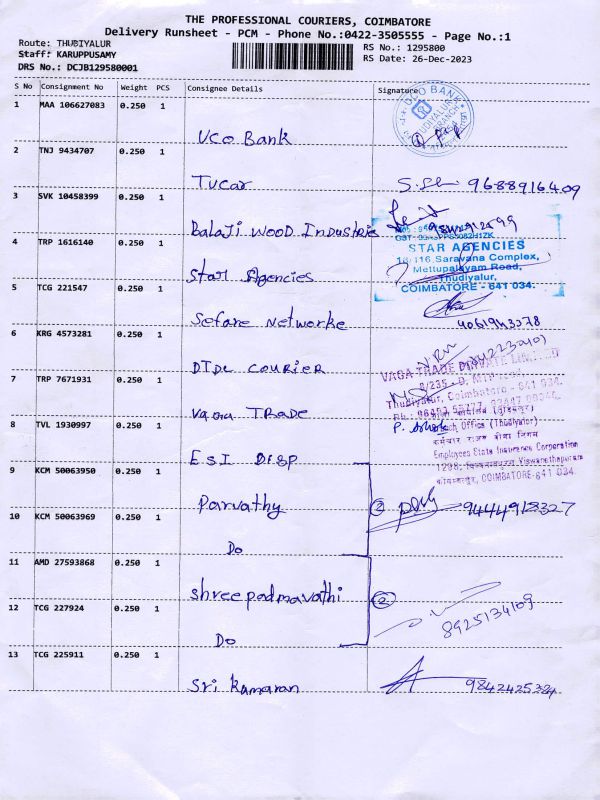 THE PROFESSIONAL COURIERS, COIMBATORE
Delivery Runsheet - PCM - Phone No.:0422-3505555 - Page No.:1
Route: THUDIYALUR
RS No.: 1295800
Staff: KARUPPUSAMY
RS Date: 26-Dec-2023
DRS No.: DCJB129580001
S No Consignment No Weight PCS Consignee Details Signature
1 MAA 106627083 0.250 1
UCO Bank
UCO BANK
2 TNJ 9434707 0.250 1
Tucar 9688916409
3 SVK 10458399 0.250 1
Balaji Wood Industries
4 TRP 1616140 0.250 1
Star Agencies
STAR AGENCIES
16/116, Saravana Complex,
Mettupalayam Road,
Thudiyalur,
COIMBATORE - 641 034.
5 TCG 221547 0.250 1
Sefare Networke
6 KRG 4573281 0.250 1
DTDC COURIER
VAGA TRADE PRIVATE LIMITED
Thudiyalur, Coimbatore - 641 034.
7 TRP 7671931 0.250 1
Vaga TRADE
8 TVL 1930997 0.250 1
ESI DISP
P. Ashok
Office (Thudiyalur)
कर्मचारी राज्य बीमा निगम
Employees State Insurance Corporation
COIMBATORE-641 034.
9 KCM 50063950 0.250 1
Parvathy
② 9444918327
10 KCM 50063969 0.250 1
Do
11 AMD 27593868 0.250 1
Shree padmavathi
② 8925134109
12 TCG 227924 0.250 1
Do
13 TCG 225911 0.250 1
Sri Kamaran